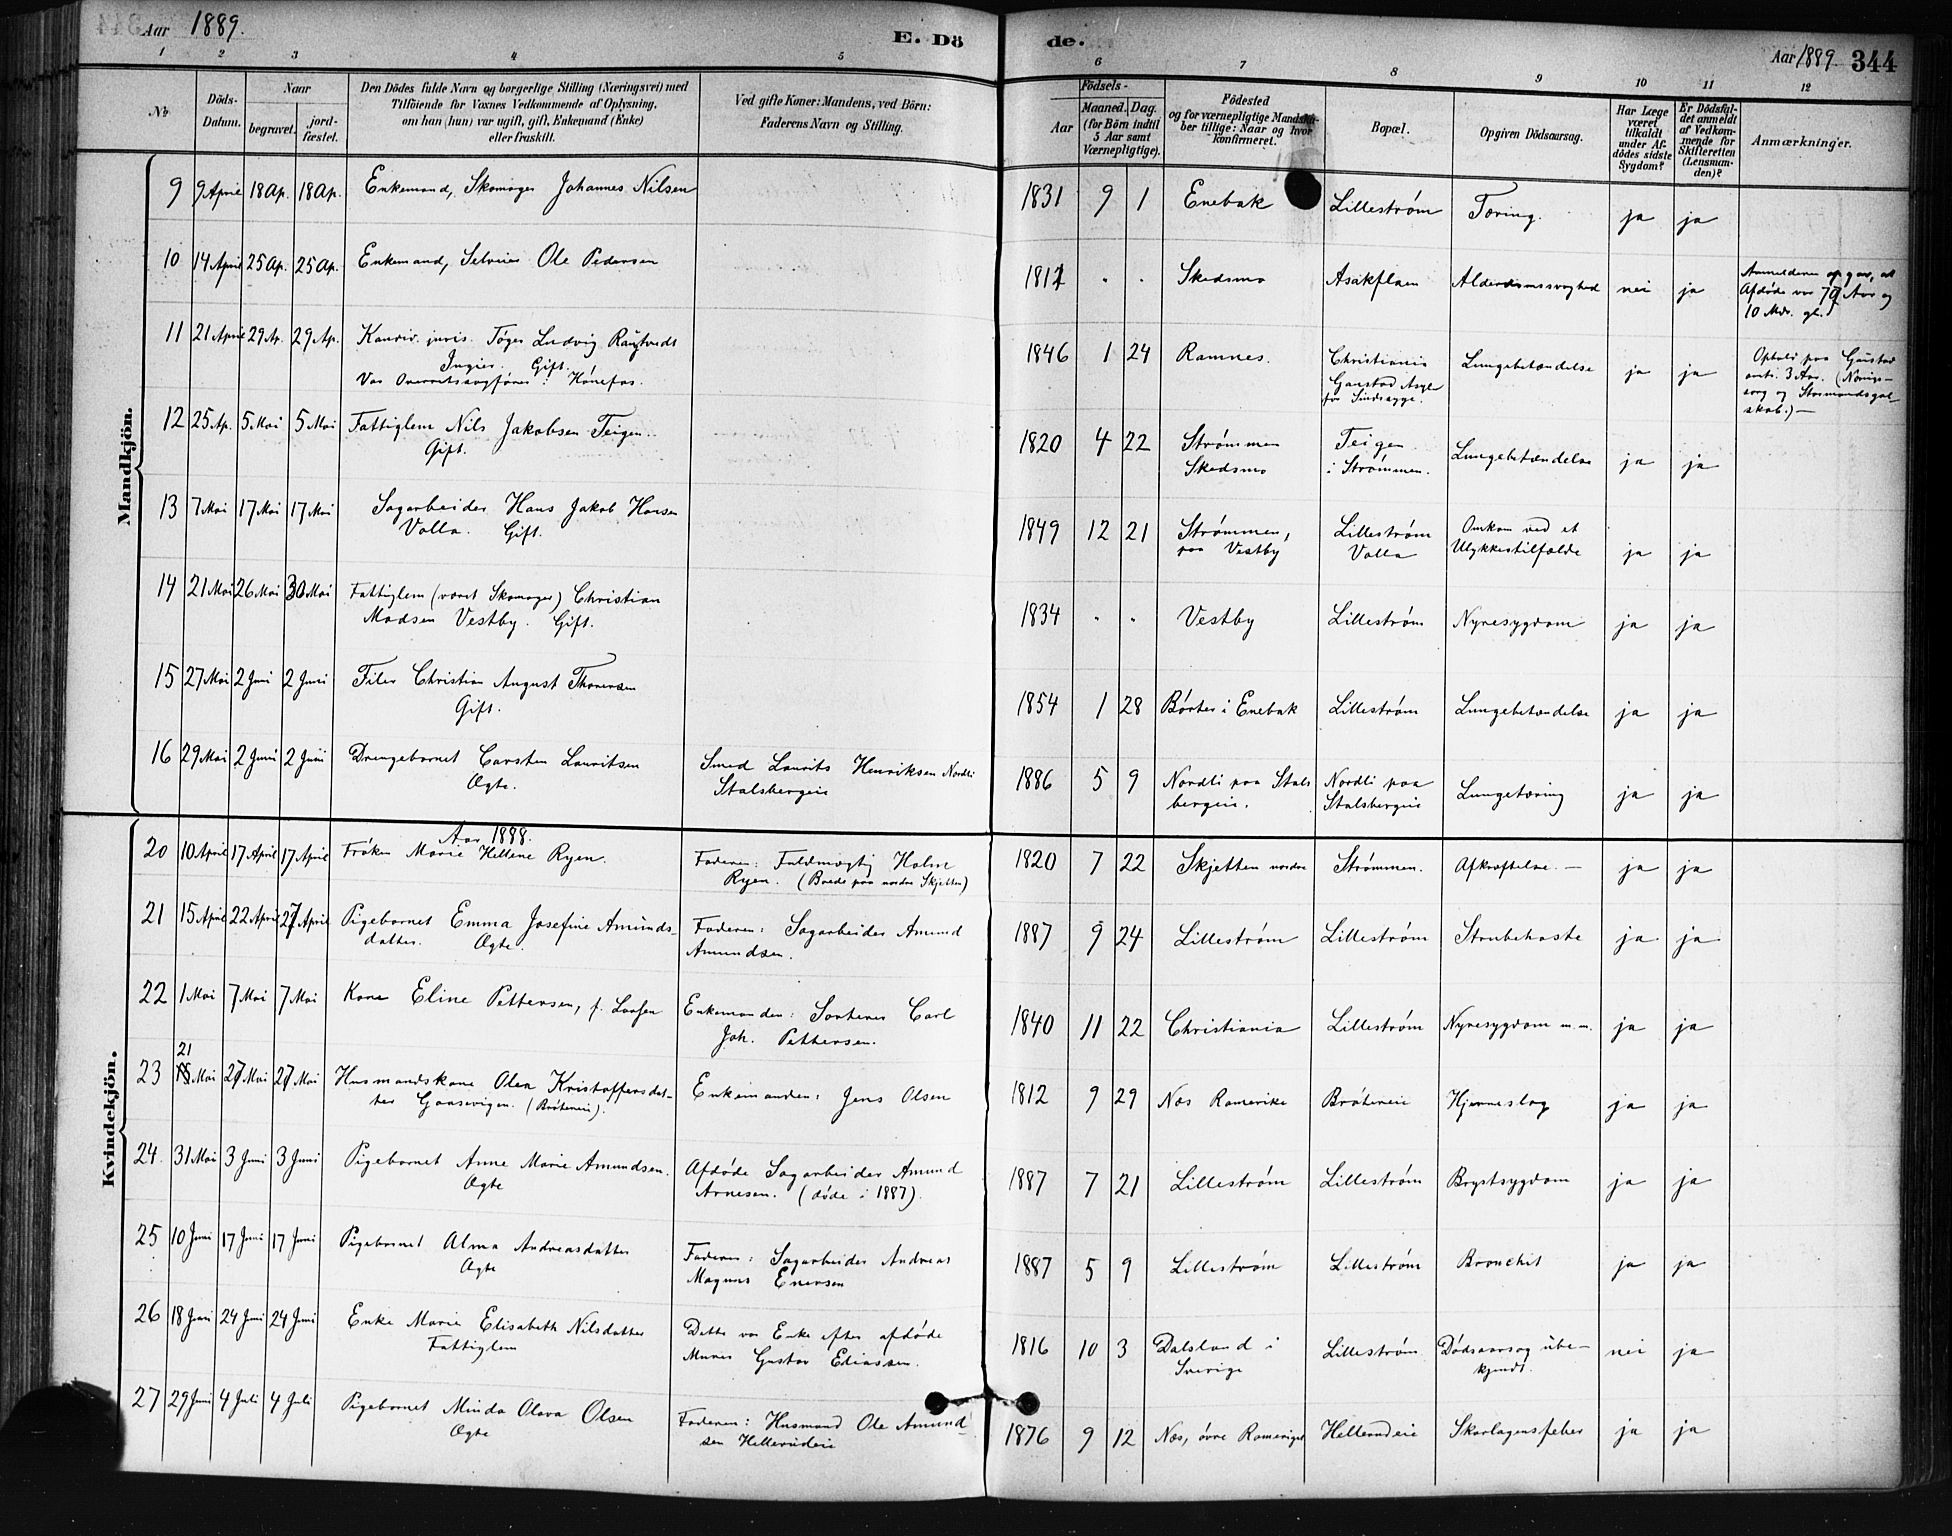 Aar 1889.
E. Dö de.
Aar 1889. 344
1 2 3 4 5 6 7 8 9 10 11 12
No
Döds-Datum.
Naar
begravet.
jord-fæstet.
Den Dödes fulde Navn og borgerlige Stilling (Næringsvei) med
Tilföiende for Voxnes Vedkommende af Oplysning,
om han (hun) var ugift, gift, Enkemand (Enke)
eller fraskilt.
Ved gifte Koner: Mandens, ved Börn:
Faderens Navn og Stilling.
Födsels-
Aar
Maaned. Dag.
(for Börn indtil
5 Aar samt
Værnepligtige).
Födested
og for værnepligtige Mandska-
ber tillige: Naar og hvor
Konfirmeret.
Bopæl.
Opgiven Dödsaarsag.
Har Læge
været
tilkaldt
under Af-
dödes sidste
Sygdom?
Er Dödsfal-
det anmeldt
af Vedkom-
mende for
Skifteretten
(Lensman-
den)?
Anmærkninger.
Mandkjön.
9 9 April 18 Ap. 18 Ap. Enkemand, Skomager Johannes Nilsen 1831 9 1 Enebak Lillestrøm Tæring. ja ja
10 14 April 25 Ap. 25 Ap. Enkemand, Selveier Ole Pedersen 1811 " " Skedsmo Asakflaen Alderdomssvaghed nei ja Anmelderen opgav, at
Afdøde var 77 Aar og
10 Mdr. gl.
11 21 April 29 Ap. 29 Ap. Kandid. juris. Tøger Ludvig
Ingier. Gift.
Var Overretssagfører i Hønefos. 1846 1 24 Ramnes. Christiania
Gaustad Asyl
for Sindssyge. Lungebetændelse ja ja Ophold paa Gaustad
omtr. 3 Aar.
12 25 Ap. 5 Mai 5 Mai Fattiglem Nils Jakobsen Teigen.
Gift. 1820 4 22 Strømmen
Skedsmo Teigen
i Strømmen. Lungebetændelse ja ja
13 7 Mai 17 Mai 17 Mai Sagarbeider Hans Jakob Hansen
Volla. Gift. 1849 12 21 Strømmen,
paa Vestby Lillestrøm
Volla Omkom ved et
Ulykkestilfælde ja ja
14 21 Mai 26 Mai 30 Mai Fattiglem (været Skomager) Christian
Madsen Vestby. Gift. 1834 " " Vestby Lillestrøm Nyresygdom ja ja
15 27 Mai 2 Juni 2 Juni Filer Christian August Thoresen
Gift. 1854 1 28 Børter i Enebak Lillestrøm Lungebetændelse ja ja
16 29 Mai 2 Juni 2 Juni Drengebarnet Carsten Lauritsen
Ægte. Smed Laurits Henriksen Nordli
Stalsbergeie 1886 5 9 Nordli paa Stals
bergeie. Nordli paa
Stalsbergeie Lungetæring ja ja
Kvindekjön.
Aar 1888.
20 10 April 17 April 17 April Frøken Marie Hellene Ryen. Faderen: Fuldmægtig Holm
Ryen. (Boede paa nordre Skjetten) 1820 7 22 Skjetten nordre Strømmen. Afkræftelse. – ja ja
21 15 April 22 April 27 April Pigebarnet Emma Josefine Amunds-
datter. Ægte. Faderen: Sagarbeider Amund
Amundsen. 1887 9 24 Lillestrøm Lillestrøm Strubehoste ja ja
22 1 Mai 7 Mai 7 Mai Kone Eline Pettersen, f. Larsen Enkemanden: Sorterer Carl
Joh. Pettersen. 1840 11 22 Christiania Lillestrøm Nyresygdom m.m. ja ja
23 21 Mai 27 Mai 27 Mai Husmandskone Olea Kristoffersdat-
ter Gaasevigen. (Bråtereie). Enkemanden: Jens Olsen 1812 9 29 Næs Romerike Bråtereie Hjerneslag ja ja
24. 31 Mai 3 Juni 3 Juni Pigebarnet Anne Marie Amundsen.
Ægte Afdøde Sagarbeider Amund
Arnesen. (døde i 1887). 1887 7 21 Lillestrøm Lillestrøm Brystsygdom ja ja
25 10 Juni 17 Juni 17 Juni Pigebarnet Alma Andreasdatter
Ægte Faderen: Sagarbeider Andreas
Magnus Enersen 1887 5 9 Lillestrøm Lillestrøm Bronchit ja ja
26 18 Juni 24 Juni 24 Juni Enke Marie Elisabeth Nilsdatter
Fattiglem Dette var Enke efter afdøde
Murer Gustav Eliassen. 1816 10 3 Dalsland i
Sverige Lillestrøm Dødsaarsag ube-
kjendt. nei ja
27 29 Juni 4 Juli 4 Juli Pigebarnet Minda Olava Olsen
Ægte Faderen: Husmand Ole Amund
sen Hellerudeie 1876 9 12 Næs, øvre Romeriget Hellerudeie Skarlagensfeber ja ja